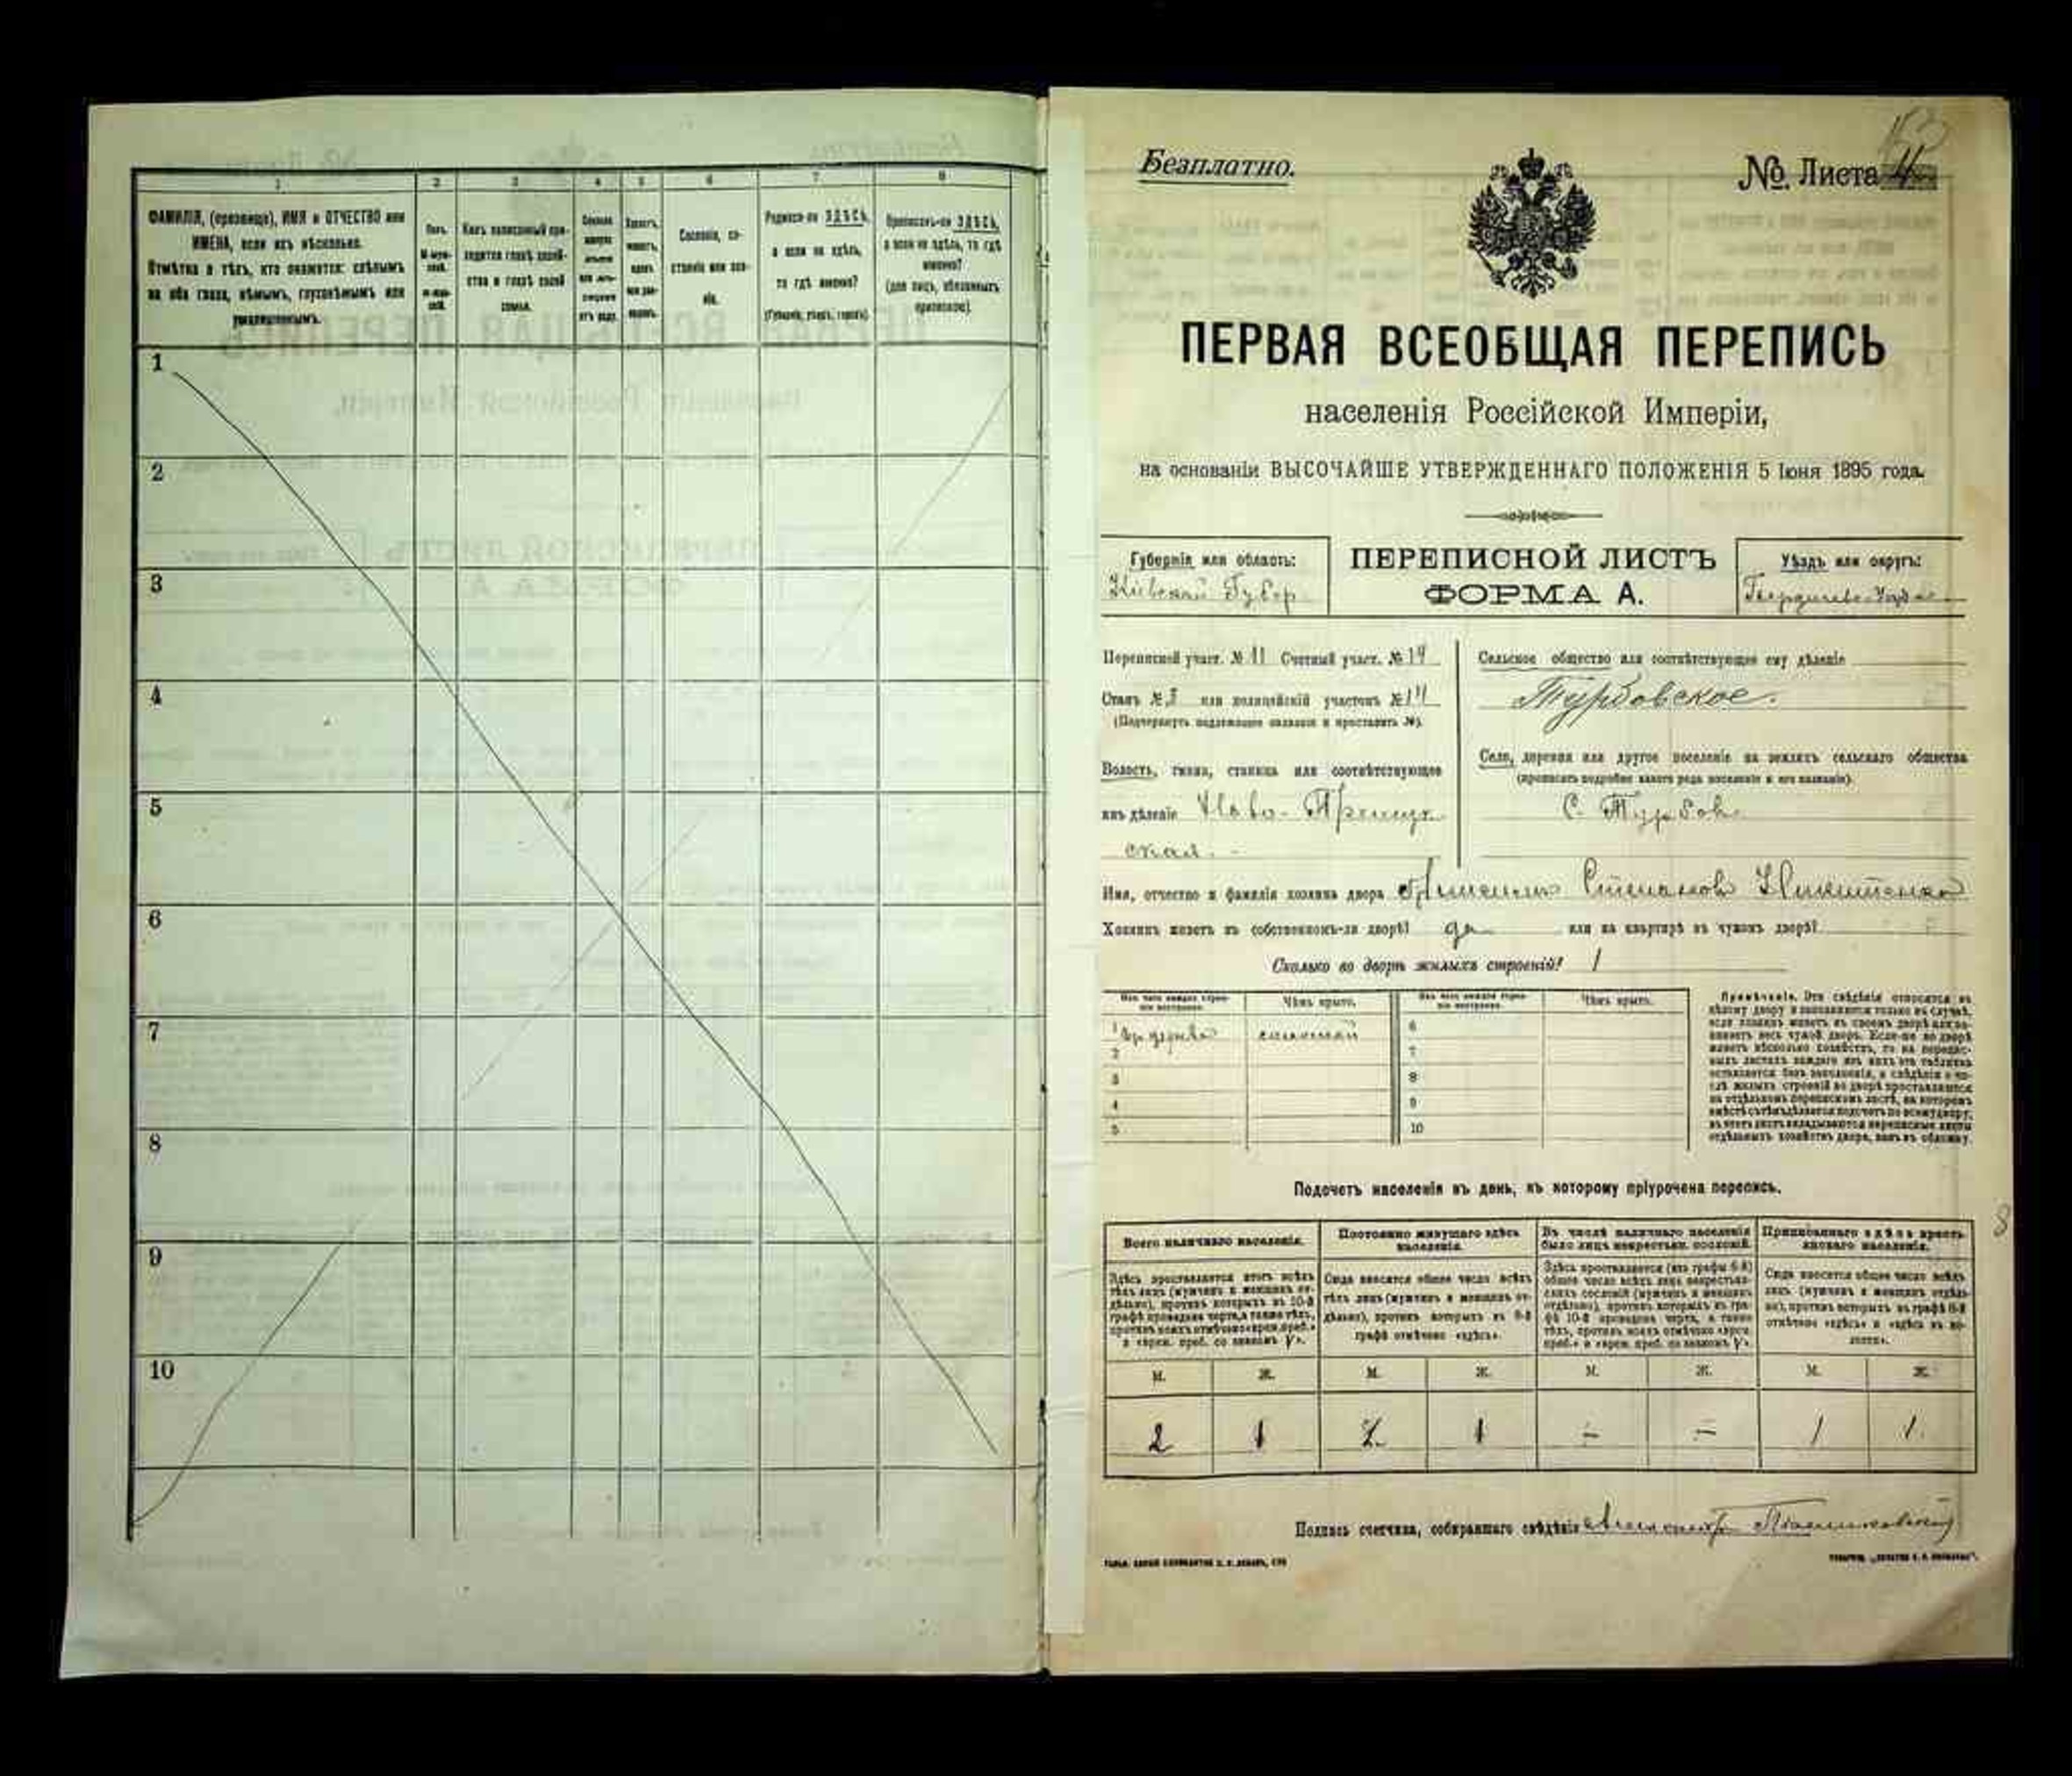 1 2 3 4 5 6 7 8
ФАМИЛІЯ, (прозвище), ИМЯ и ОТЧЕСТВО или
ИМЕНА, если ихъ нѣсколько.
Отмѣтка о тѣхъ, кто окажется: слѣпымъ
на оба глаза, нѣмымъ, глухонѣмымъ или
умалишеннымъ.
Полъ.
Какъ записанный при-
ходится главѣ хозяй-
ства и главѣ своей
семьи.
Сословіе, со-
стояніе или зва-
ніе.
Родился-ли ЗДѢСЬ,
а если не здѣсь,
то гдѣ именно?
(Губернія, уѣздъ, городъ).
Приписанъ-ли ЗДѢСЬ,
а если не здѣсь, то гдѣ
именно?
(для лицъ, обязанныхъ
припискою).
1
2
3
4
5
6
7
8
9
10
Безплатно.
№ Листа 4
ПЕРВАЯ ВСЕОБЩАЯ ПЕРЕПИСЬ
населенія Россійской Имперіи,
на основаніи ВЫСОЧАЙШЕ УТВЕРЖДЕННАГО ПОЛОЖЕНІЯ 5 Іюня 1895 года.
Губернія или область:
Кіевская Губер
ПЕРЕПИСНОЙ ЛИСТЪ
ФОРМА А.
Уѣздъ или округъ:
Переписной участ. № 11 Счетный участ. № 14
Станъ № 3 или полицейскій участокъ № 14
(Подчеркнуть подлежащее названіе и проставить №).
Волость, гмина, станица или соотвѣтствующее
имъ дѣленіе Ново-
ская.
Сельское общество или соотвѣтствующее ему дѣленіе
Турбовское.
Село, деревня или другое поселеніе на земляхъ сельскаго общества
(прописать подробнѣе какого рода поселеніе и его названіе).
С. Турбовъ
Имя, отчество и фамилія хозяина двора Степановъ Никитенко
Хозяинъ живетъ въ собственномъ-ли дворѣ? да или на квартирѣ въ чужомъ дворѣ?
Сколько во дворѣ жилыхъ строеній? 1
Изъ чего каждое строе-
ніе построено.
Чѣмъ крыто.
Изъ чего каждое строе-
ніе построено.
Чѣмъ крыто.
1 дерева соломой 6
2 7
3 8
4 9
5 10
Примѣчаніе. Эти свѣдѣнія относятся къ
цѣлому двору и заполняются только въ случаѣ,
если хозяинъ живетъ въ своемъ дворѣ или за-
нимаетъ весь чужой дворъ. Если-же во дворѣ
живетъ нѣсколько хозяйствъ, то на перепис-
ныхъ листахъ каждаго изъ нихъ эта табличка
оставляется безъ заполненія, а свѣдѣнія о чи-
слѣ жилыхъ строеній во дворѣ проставляются
на отдѣльномъ переписномъ листѣ, на которомъ
вмѣстѣ съ тѣмъ дѣлается подсчетъ по всему двору;
въ этотъ листъ вкладываются переписные листы
отдѣльныхъ хозяйствъ двора, какъ въ обложку.
Подсчетъ населенія въ день, къ которому пріурочена перепись.
Всего наличнаго населенія.
Здѣсь проставляется итогъ всѣхъ
тѣхъ лицъ (мужчинъ и женщинъ от-
дѣльно), противъ которыхъ въ 10-й
графѣ проведена черта, а также тѣхъ,
противъ коихъ отмѣчено «врем. преб.»
и «врем. преб. со знакомъ V».
Постоянно живущаго здѣсь
населенія.
Сюда вносится общее число всѣхъ
тѣхъ лицъ (мужчинъ и женщинъ от-
дѣльно), противъ которыхъ въ 9-й
графѣ отмѣчено «здѣсь».
Въ числѣ наличнаго населенія
было лицъ некрестьян. сословій.
Здѣсь проставляется (изъ графы 6-й)
общее число всѣхъ лицъ некрестьян-
скихъ сословій (мужчинъ и женщинъ
отдѣльно), противъ которыхъ въ гра-
фѣ 10-й проведена черта, а также
тѣхъ, противъ коихъ отмѣчено «врем.
преб.» и «врем. преб. со знакомъ V».
Приписаннаго здѣсь кресть-
янскаго населенія.
Сюда вносится общее число всѣхъ
лицъ (мужчинъ и женщинъ отдѣль-
но), противъ которыхъ въ графѣ 8-й
отмѣчено «здѣсь» и «здѣсь въ во-
лости».
М. Ж. М. Ж. М. Ж. М. Ж.
2 1 2 1 – – 1 1
Подпись счетчика, собиравшаго свѣдѣнія